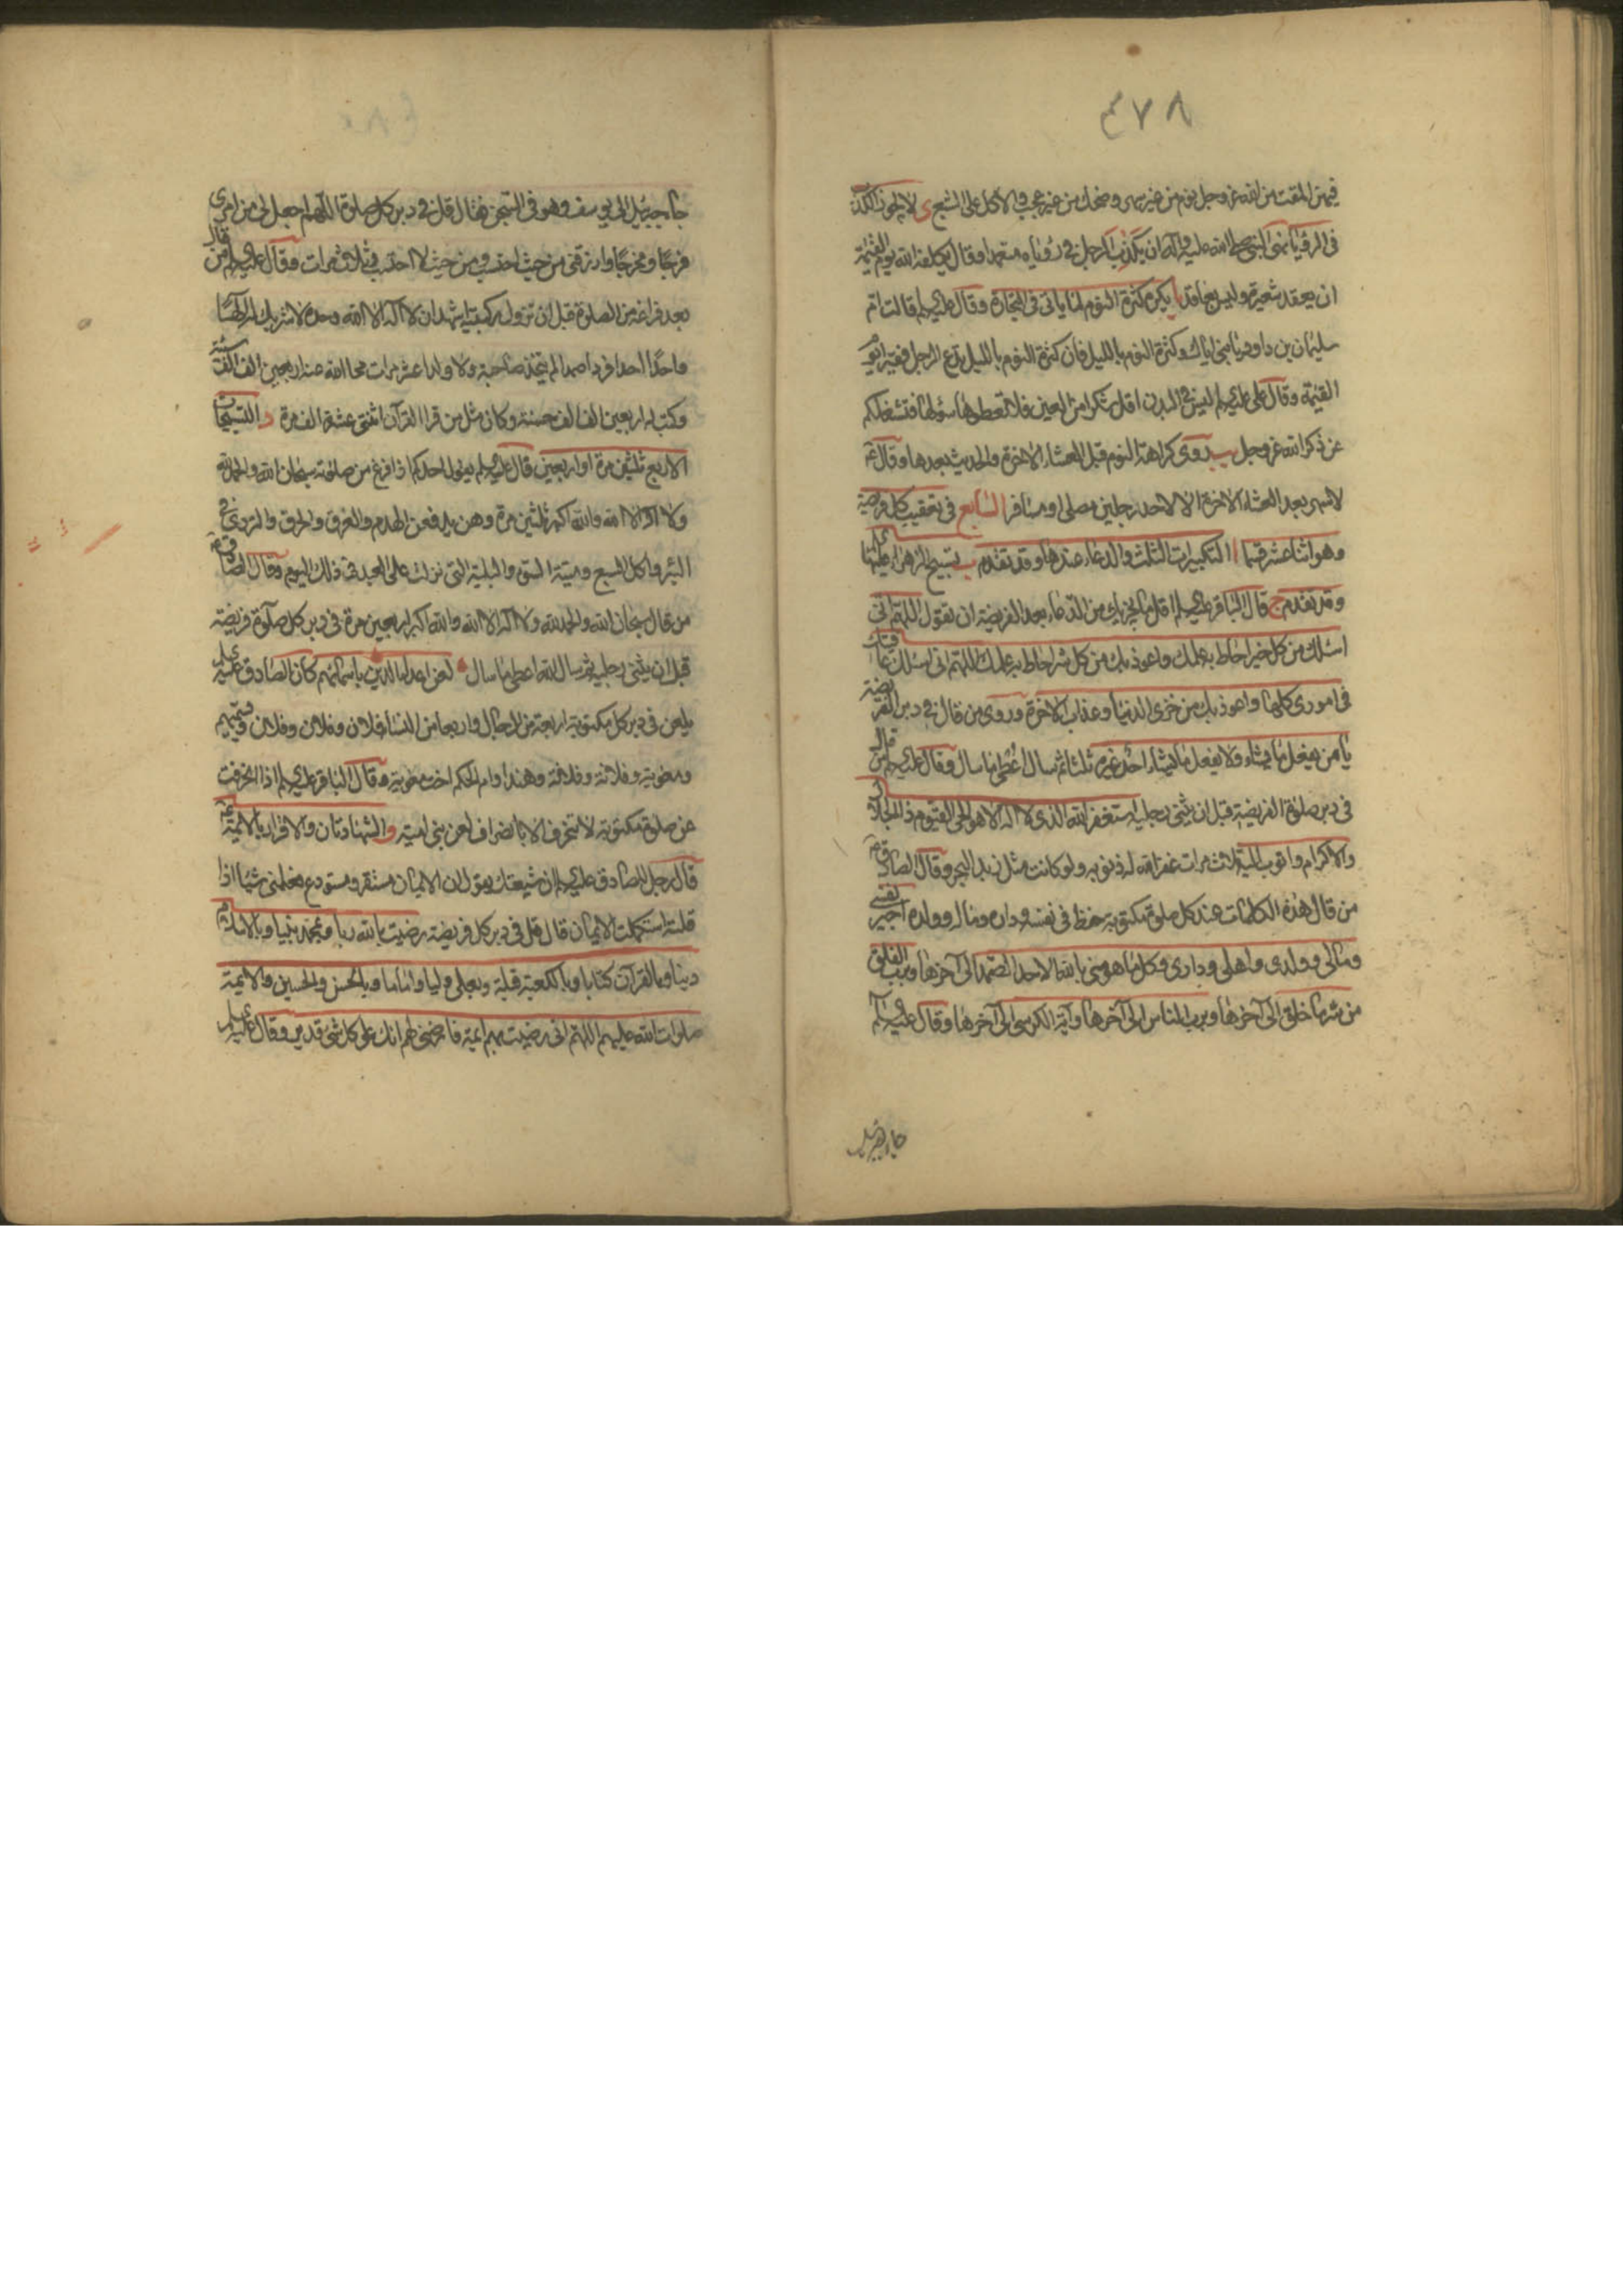 ٤٧٨
فيهن المقت من الله عز وجل نوم من غير سهر وضحك من غير عجب والاكل على الشبع ى لا يجوز الكذب
فى الرؤيا نهى النبى صلى الله عليه وآله ان يكذب الرجل فى رؤياه متعمدا وقال يكلفه الله يوم القيمة
ان يعقد شعيرة وليس بعاقدها يا يكره كثرة النوم لما ياتى فى التجارة وقال عليه السلم قالت ام
سليمان بن داود يا بنى اياك وكثرة النوم بالليل فان كثرة النوم بالليل تدع الرجل فقيرا يوم
القيمة وقال على عليه السلم ليس فى البدن اقل شكرا من العين فلا تعطوها سؤلها فتشغلكم
عن ذكر الله عز وجل يب روى كراهة النوم قبل العشاء الاخرة والحديث بعدها وقال ع
لا سهر بعد العشاء الاخرة الا لاحد رجلين مصلى او مسافر السابع فى تعقيب كل فريضة
وهو اثنا عشر قسما ا التكبيرات الثلث والدعاء عندها وقد تقدم ب تسبيح الزهراء عليها
وقد تقدم ج قال الباقر عليه السلم اقل ما يجزيك من الدعاء بعد الفريضة ان تقول اللهم انى
اسئلك من كل خير احاط به علمك واعوذ بك من كل شر احاط به علمك اللهم انى اسئلك عافيتك
فى امورى كلها واعوذ بك من خزى الدنيا وعذاب الاخرة وروى من قال فى دبر الفريضة
يا من يفعل ما يشاء ولا يفعل ما يشاء احد غيره ثلثا ثم سال اعطى ما سال وقال عليه السلم من قال
فى دبر صلوة الفريضة قبل ان يثنى رجليه استغفر الله الذى لا اله الا هو الحى القيوم ذا الجلال
والاكرام واتوب اليه ثلاث مرات غفر الله له ذنوبه ولو كانت مثل زبد البحر وقال الصادق ع
من قال هذه الكلمات عند كل صلوة مكتوبة حفظ فى نفسه وداره وماله وولده اجير نفسى
ومالى وولدى واهلى ودارى وكل ما هو منى بالله الاحد الصمد الى آخرها وبرب الفلق
من شر ما خلق الى آخرها وبرب الناس الى آخرها وآية الكرسى الى آخرها وقال عليه السلم
جاء جبرئيل
جاء جبرئيل الى يوسف وهو فى السجن فقال قل فى دبر كل صلوة اللهم اجعل لى من امرى
فرجا ومخرجا وارزقنى من حيث احتسب ومن حيث لا احتسب ثلاث مرات وقال عليه السلم من قال
بعد فراغه من الصلوة قبل ان تزول ركبتيه اشهد ان لا اله الا الله وحده لا شريك له الها
واحدا احدا فردا صمدا لم يتخذ صاحبة ولا ولدا عشر مرات محا الله عنه اربعين الف الف سيئة
وكتب له اربعين الف الف حسنة وكان مثل من قرا القرآن اثنتى عشرة الف مرة د التسبيحات
الاربع ثلثين مرة او اربعين قال عليه السلم يقول احدكم اذا فرغ من صلوته سبحان الله والحمد لله
ولا اله الا الله والله اكبر ثلثين مرة وهن يدفعن الهدم والغرق والحرق والتردى فى
البئر واكل السبع وميتة السوء والبلية التى نزلت على العبد فى ذلك اليوم وقال الصادق ع
من قال سبحان الله والحمد لله ولا اله الا الله والله اكبر اربعين مرة فى دبر كل صلوة فريضة
قبل ان يثنى رجليه ثم سال الله اعطى ما سال ه لعن اعداء الدين باسمائهم كان الصادق عليه السلم
يلعن فى دبر كل مكتوبة اربعة من الرجال واربعا من النساء فلان وفلان وفلان ويسميهم
ومعوية وفلانة وفلانة وهندا وام الحكم اخت معوية وقال الباقر عليه السلم اذا انحرفت
عن صلوة مكتوبة لا تنحرف الا بانصراف لعن بنى امية و الشهادتان والاقرار بالائمة ع
قال رجل للصادق عليه السلم ان شيعتك يقول ان الايمان مستقر ومستودع فعلمنى شيئا اذا
قلته استكملت الايمان قال قل فى دبر كل فريضة رضيت بالله ربا وبمحمد نبيا وبالاسلام
دينا وبالقرآن كتابا وبالكعبة قبلة وبعلى وليا واماما وبالحسن والحسين والائمة
صلوات الله عليهم اللهم انى رضيت بهم ائمة فارضنى لهم انك على كل شىء قدير وقال عليه السلم